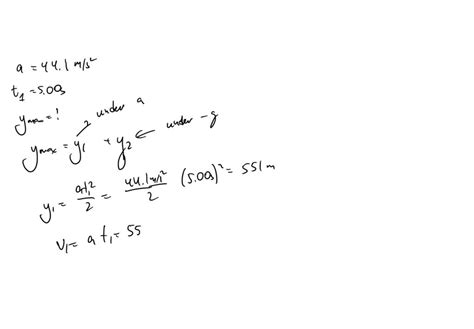 a = 44.1 m/s²
t₁ = 5.00s
yₘₐₓ = ?
under a
yₘₐₓ = y₁ + y₂ ← under -g
y₁ = at₁²/2 = 44.1 m/s²/2 (5.00s)² = 551 m
v₁ = a t₁ = 55